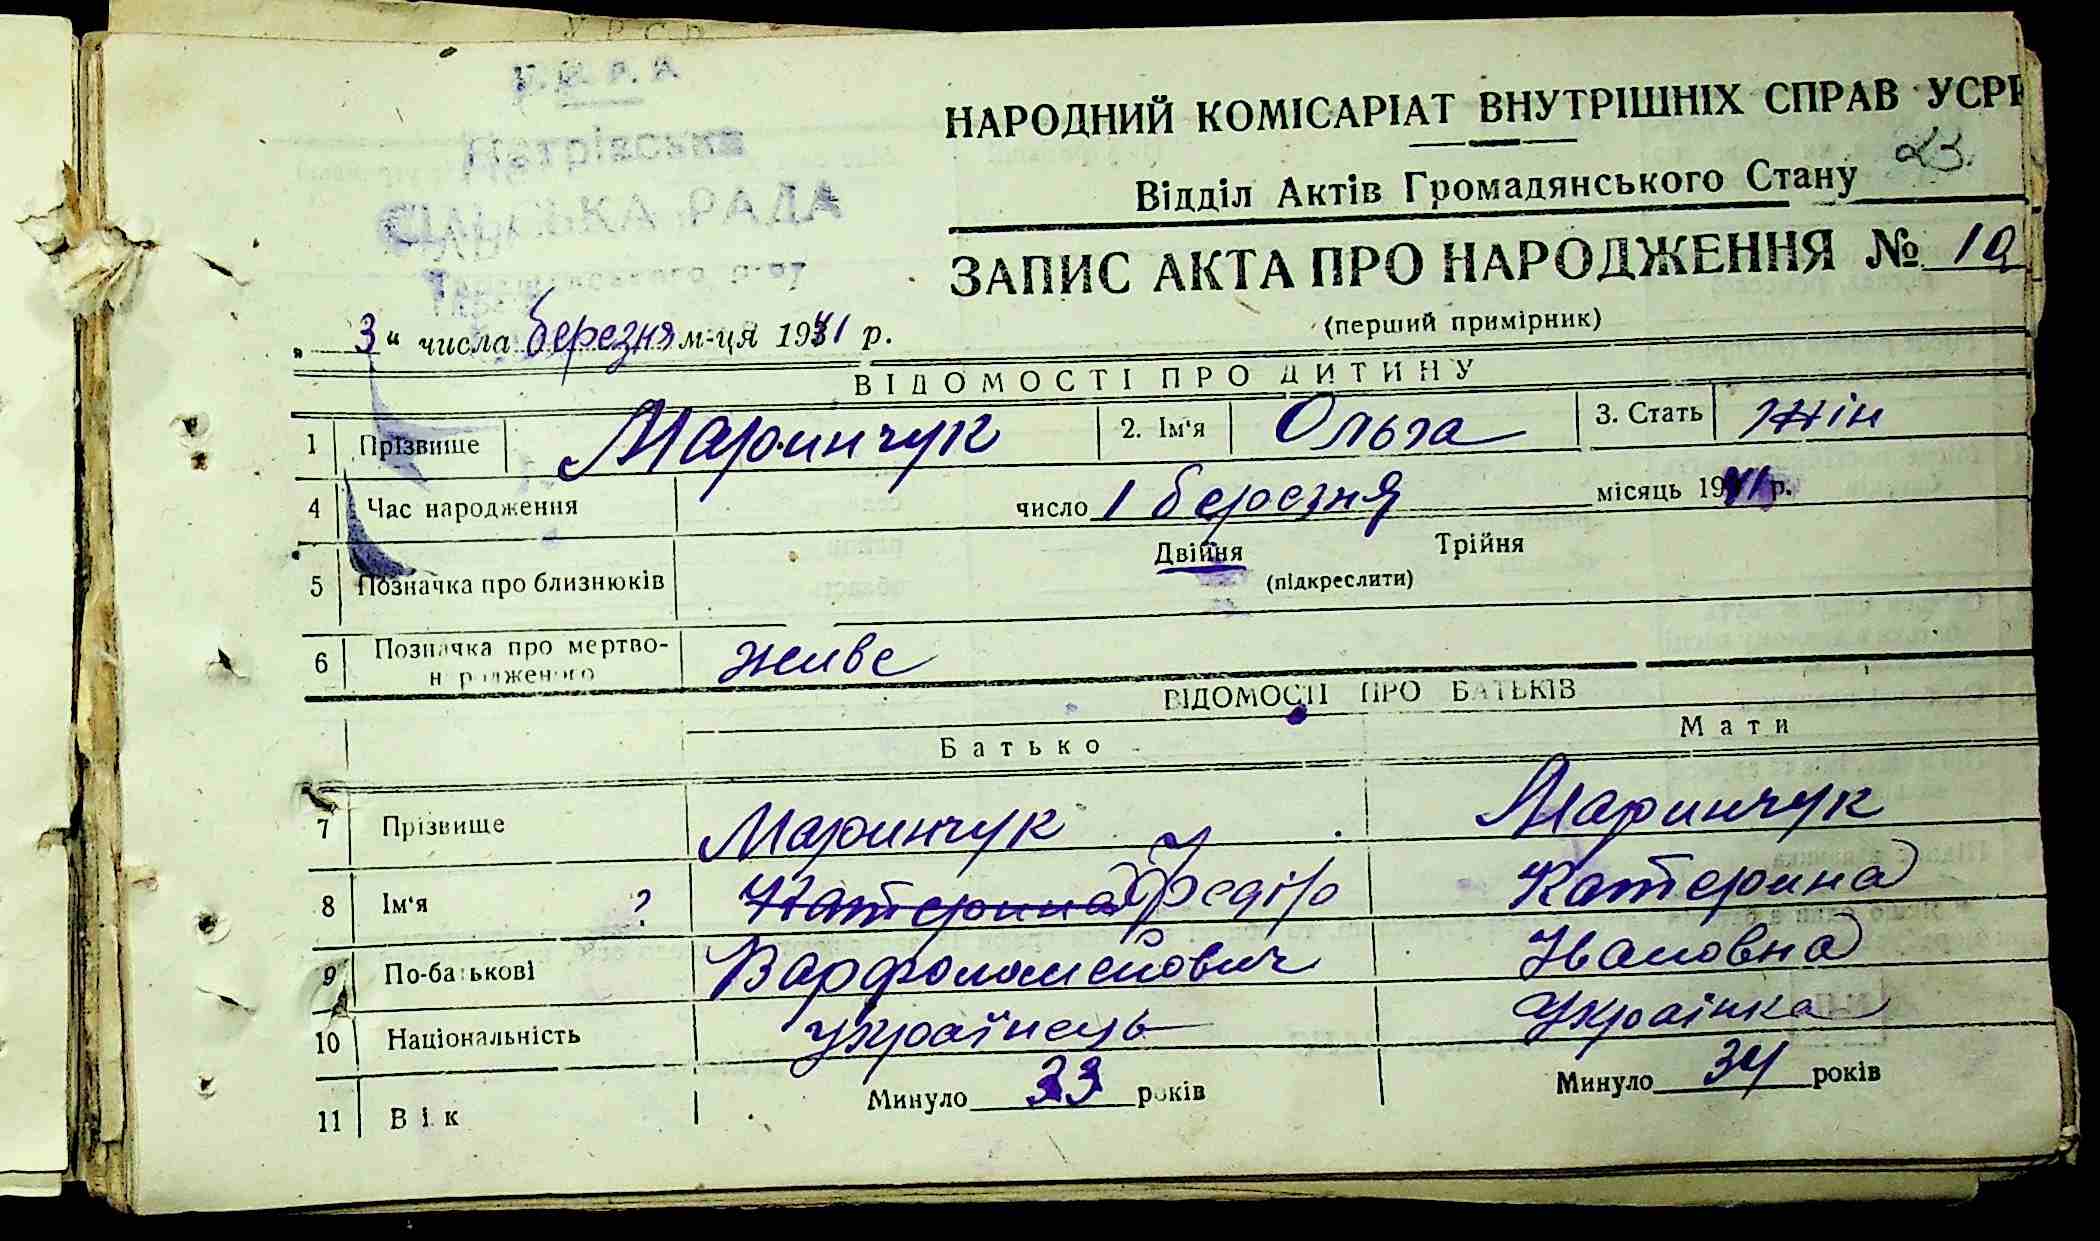 Петрівська
СІЛЬСЬКА РАДА
НАРОДНИЙ КОМІСАРІАТ ВНУТРІШНІХ СПРАВ УСРР
23.
Відділ Актів Громадянського Стану
ЗАПИС АКТА ПРО НАРОДЖЕННЯ № 10
(перший примірник)
„ 3 “ числа березня м-ця 1941 р.
ВІДОМОСТІ ПРО ДИТИНУ
1 Прізвище Маринчук 2. Ім'я Ольга 3. Стать жін
4 Час народження число 1 березня місяць 1941 р.
5 Позначка про близнюків Двійня Трійня
(підкреслити)
6 Позначка про мертво-
народженого живе
ВІДОМОСТІ ПРО БАТЬКІВ
Батько Мати
7 Прізвище Маринчук Маринчук
8 Ім'я ? Катерина Федір Катерина
9 По-батькові Варфоломейович Івановна
10 Національність українець Українка
11 Вік Минуло 33 років Минуло 34 років